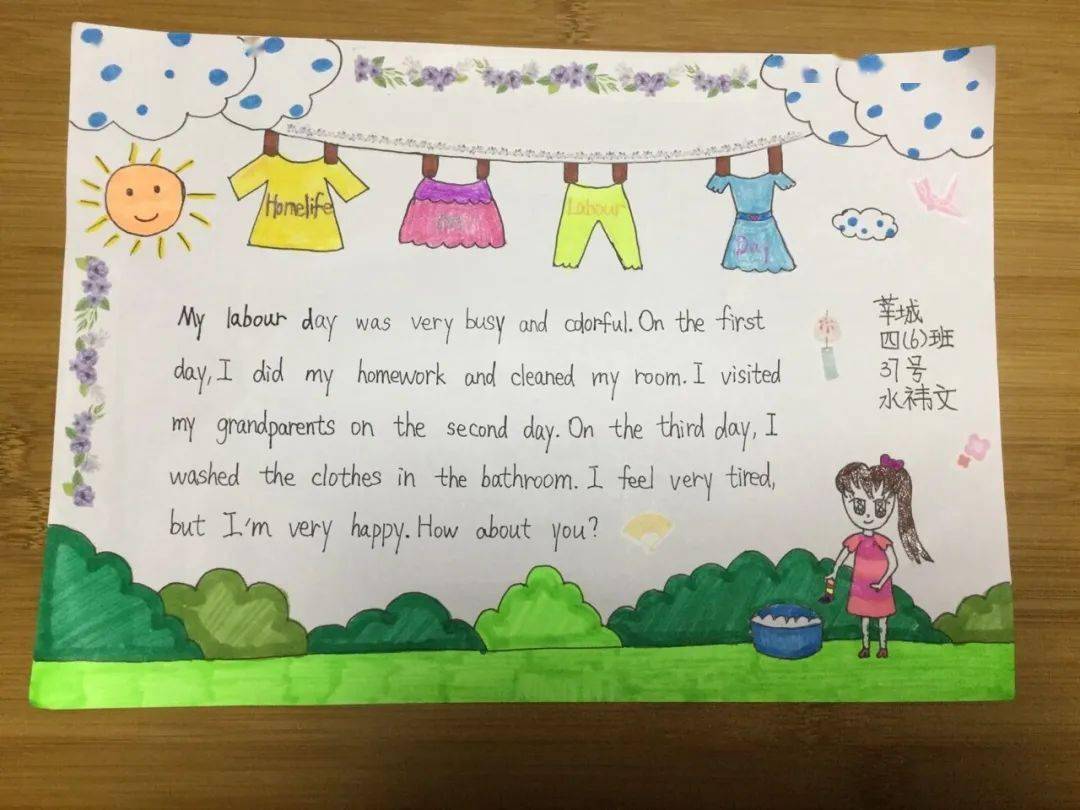 Homelife
Labour
Day
My labour day was very busy and colorful. On the first
day, I did my homework and cleaned my room. I visited
my grandparents on the second day. On the third day, I
washed the clothes in the bathroom. I feel very tired,
but I'm very happy. How about you?
莘城
四(6)班
37号
水祎文